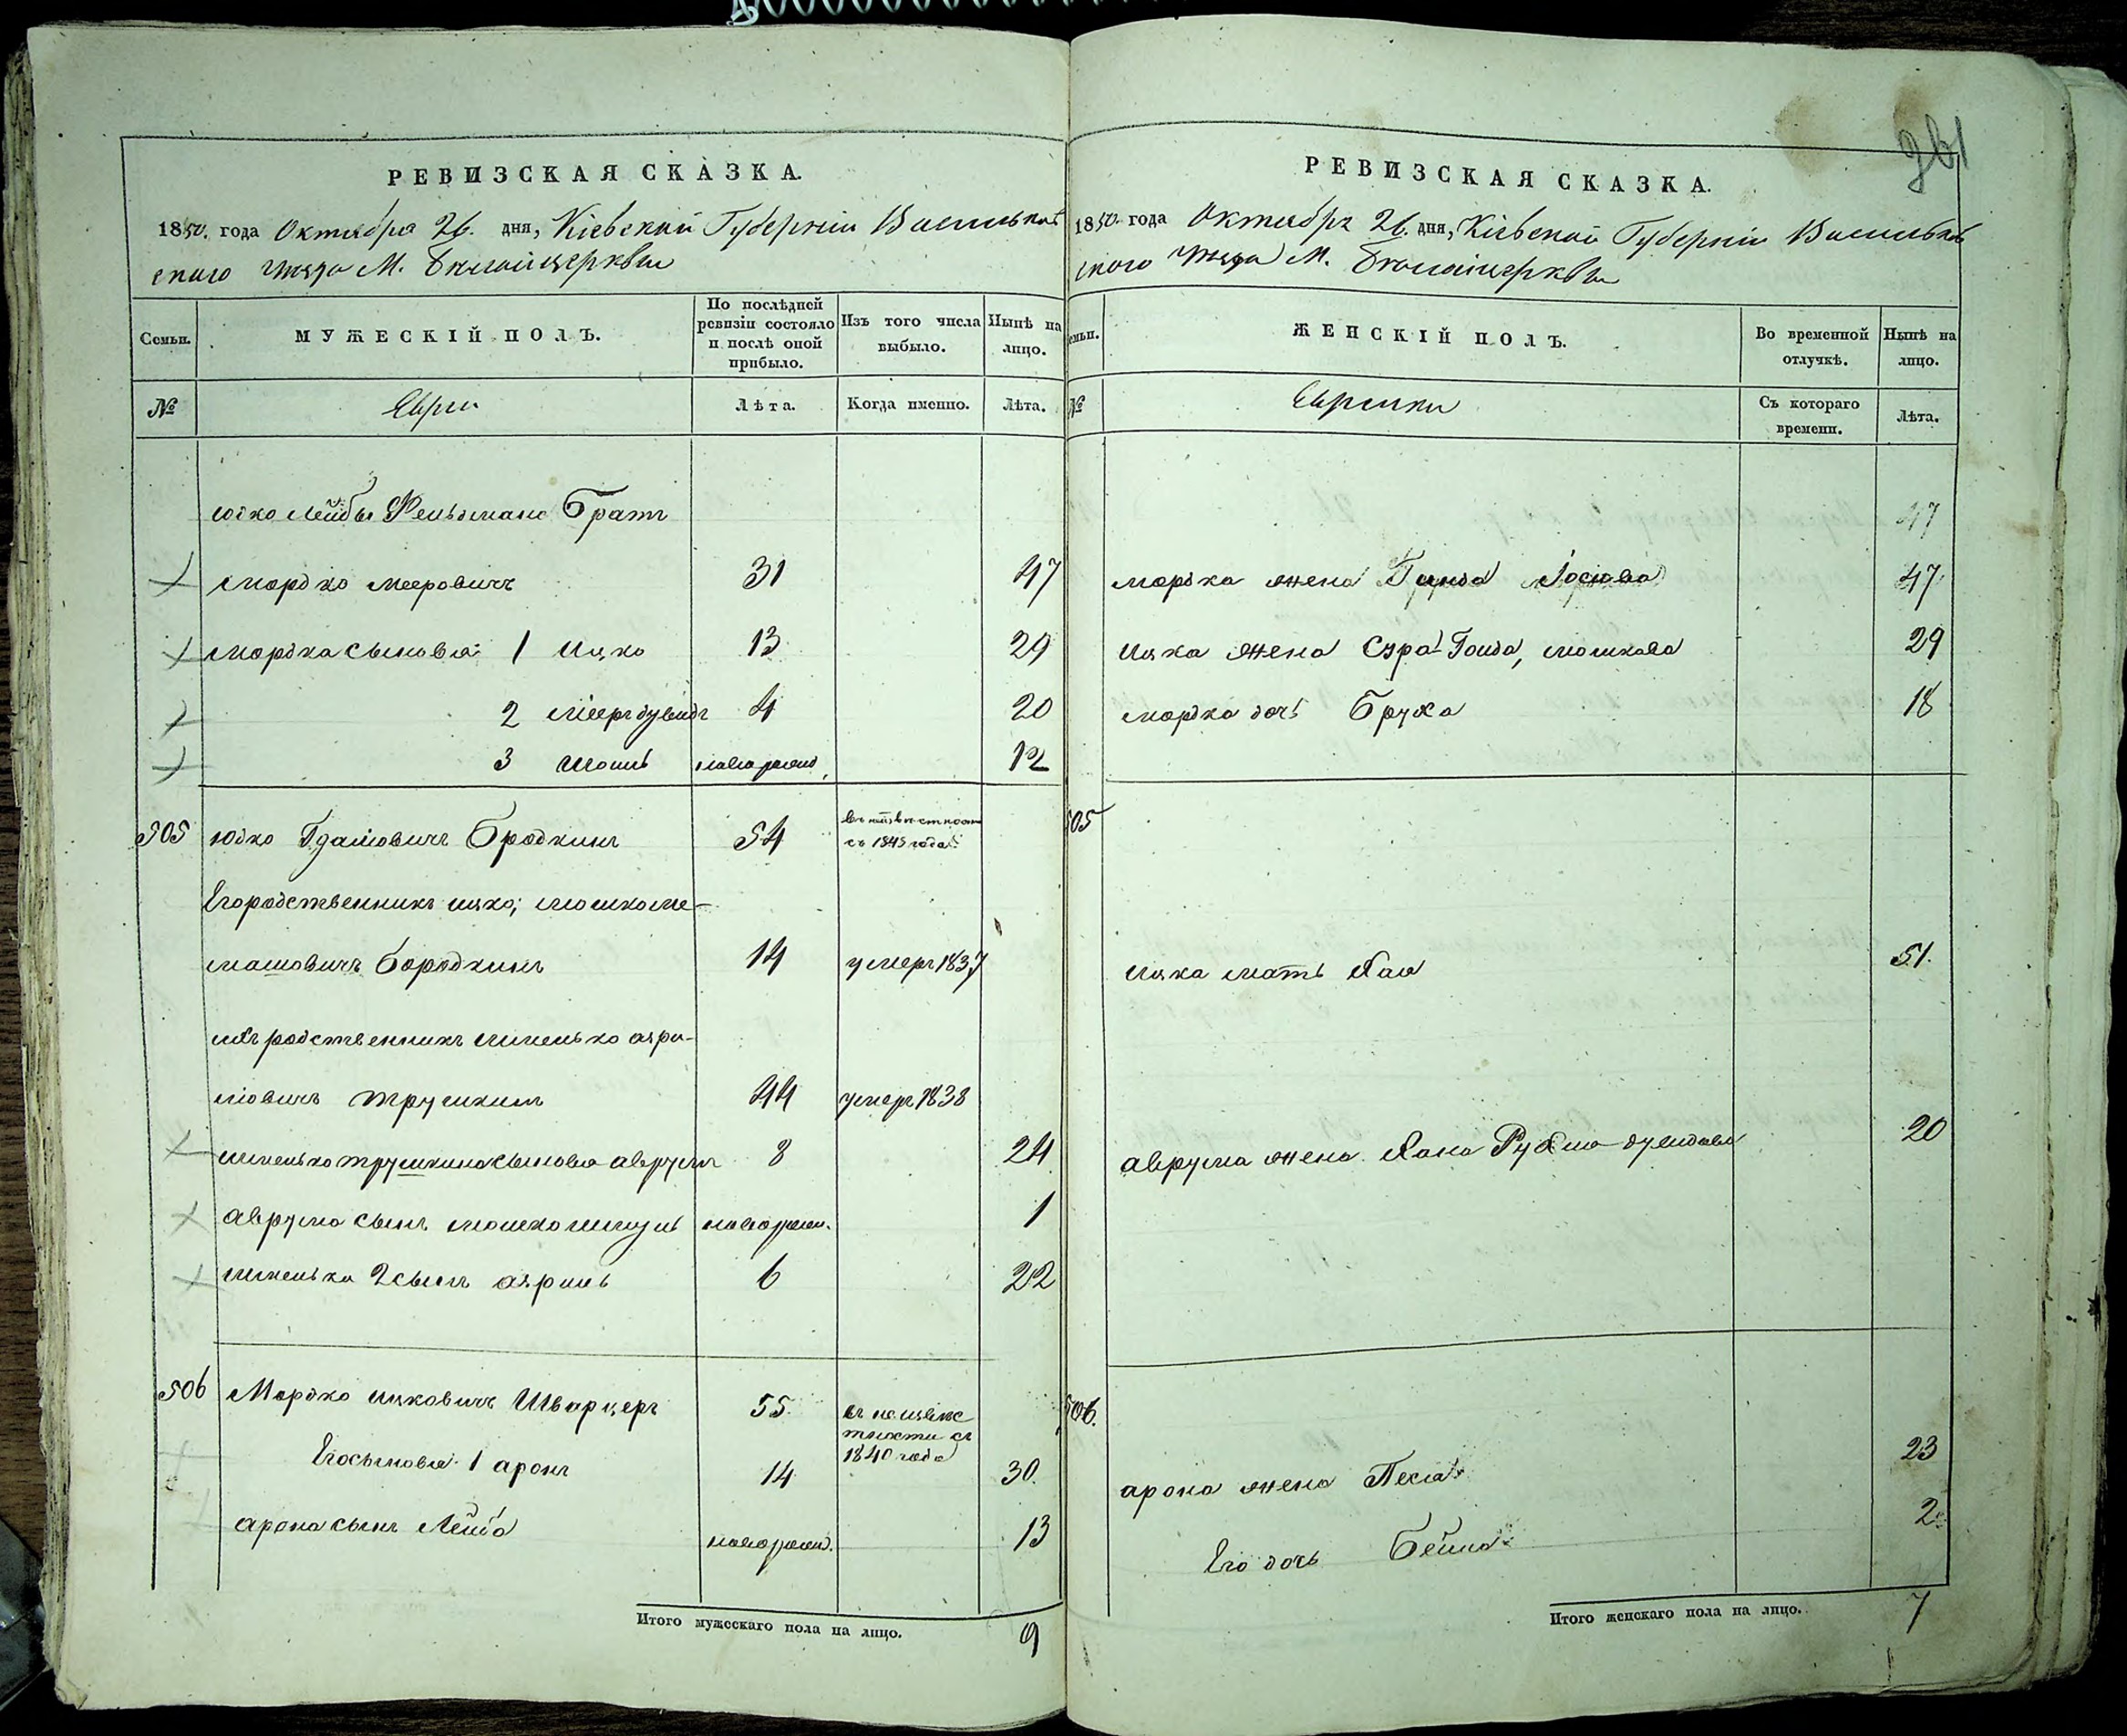 РЕВИЗСКАЯ СКАЗКА.
1850. года Октября 26. дня, Кіевской Губерніи Васильков
скаго уезда М. Белойцеркви
Семьи.
МУЖЕСКІЙ ПОЛЪ.
По послѣдней ревизіи состояло и послѣ оной прибыло.
Изъ того числа выбыло.
Нынѣ на лицо.
№
Евреи
Лѣта.
Когда именно.
Лѣта.
юдко Лейбы Фельдмана Братъ
мордко мееровичъ 31 47
мордка сыновья: 1 ицко 13 29
2 меердувидъ 4 20
3 новорожд. 12
505 юдко Бродкинъ 54 съ 1845 года
Его родственникъ ицко, мошко ме-
машовичъ бородкинъ 14 умеръ 1837
родственникъ
мовичъ трушкинъ 44 умеръ 1838
трушкина сыновья аврумъ 8 24
аврума сынъ новорожд. 1
2 сынъ 6 22
506 Мордко ицковичъ Шварцеръ 55 въ неизвес
тности съ
1840 года
Его сыновья 1 аронъ 14 30.
арона сынъ Лейба новорожд. 13
Итого мужескаго пола на лицо. 9
261
РЕВИЗСКАЯ СКАЗКА.
1850. года Октября 26. дня, Кіевской Губерніи Васильков
скаго уезда М. Белойцеркви
емьи.
ЖЕНСКІЙ ПОЛЪ.
Во временной отлучкѣ.
Нынѣ на лицо.
№
Еврейки
Съ котораго времени.
Лѣта.
47
мордка жена 47
ицка жена Сура Гольда, мошкова 29
мордка дочь Бруха 18
505
ицка мать Хая 51.
аврума жена Хана Рухля дувидова 20
506.
арона жена Песя 23
Его дочь Бейла 2
Итого женскаго пола на лицо. 7